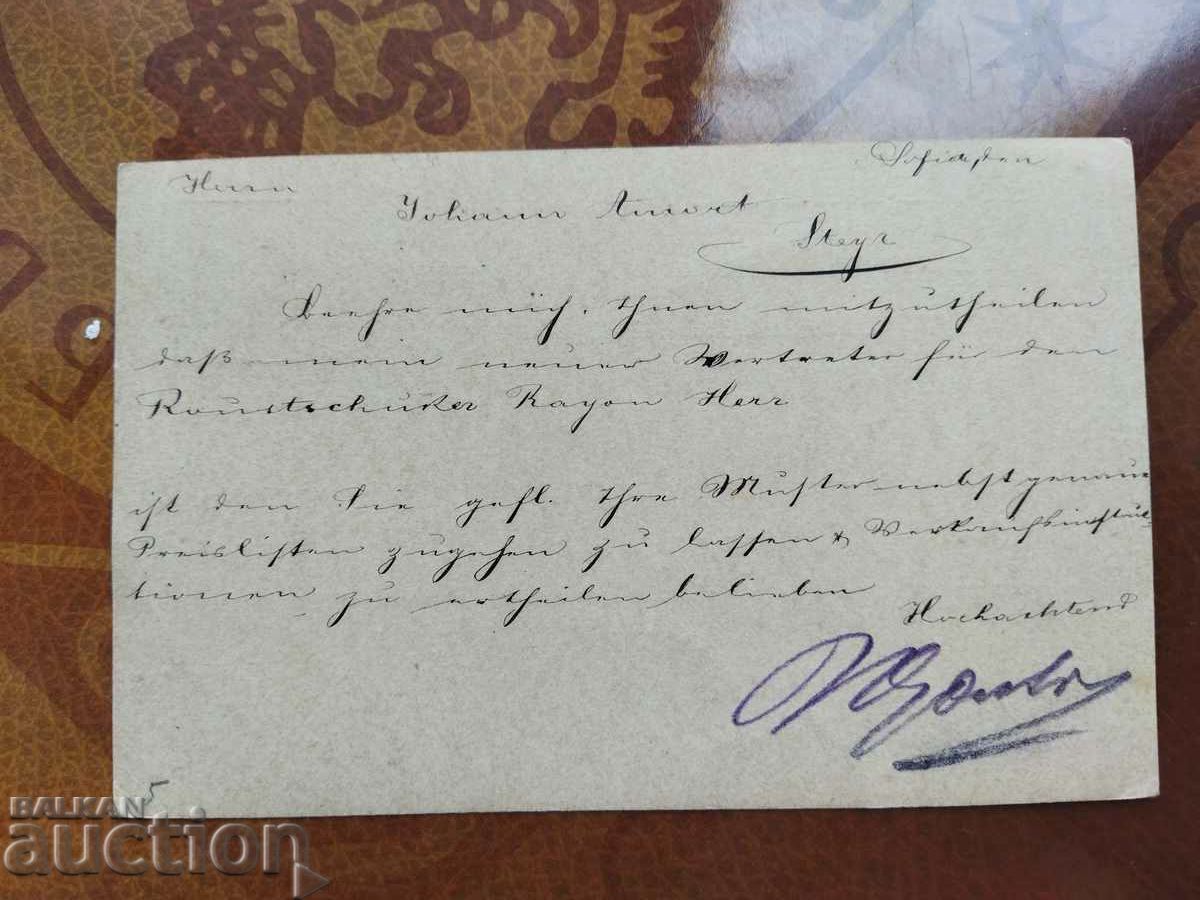 Sofia, den
Herrn
Johann Amort
Steyr
Beehre mich, Ihnen mitzutheilen
daß mein neuer Vertreter für den
Roustschuker Rayon Herr
ist den Sie gefl. Ihre Muster nebst genaue
Preislisten zugehen zu lassen & Verkaufsinstuc-
tionen zu ertheilen belieben
Hochachtend
5
BALKAN
auction